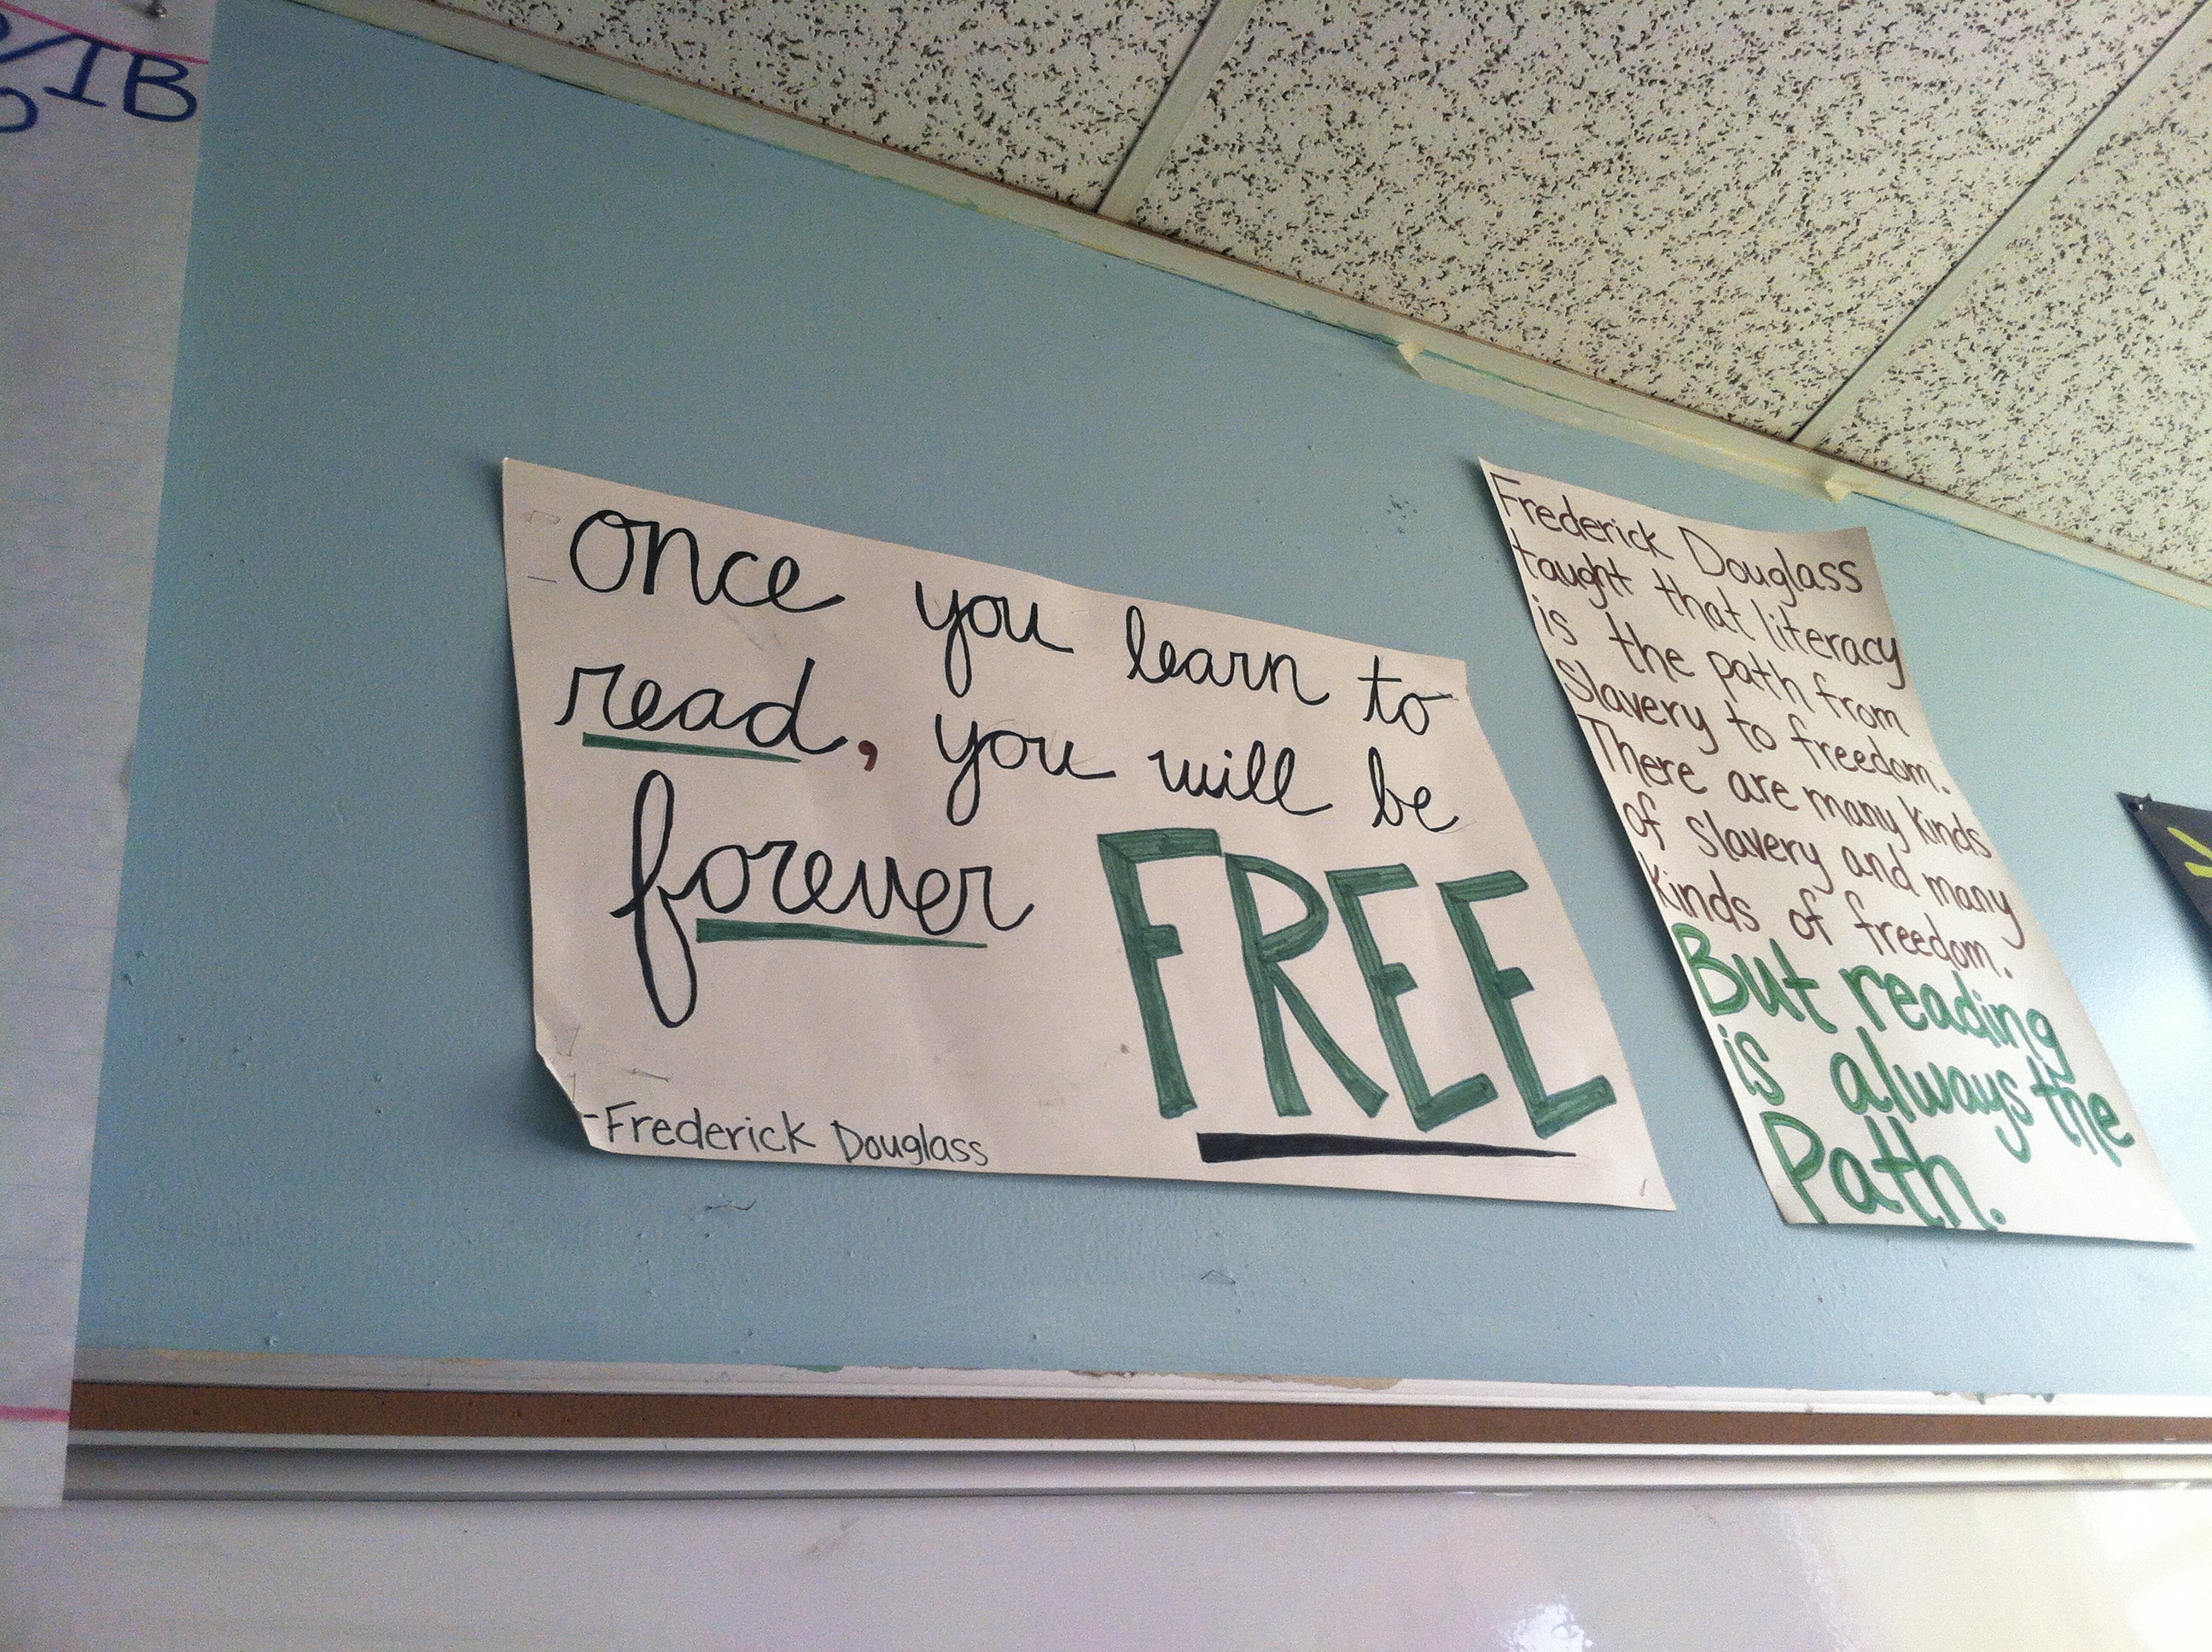 IB
once you learn to
read, you will be
forever FREE
-Frederick Douglass
Frederick Douglass
taught that literacy
is the path from
Slavery to freedom.
There are many kinds
of slavery and many
kinds of freedom.
But reading
is always the
Path.